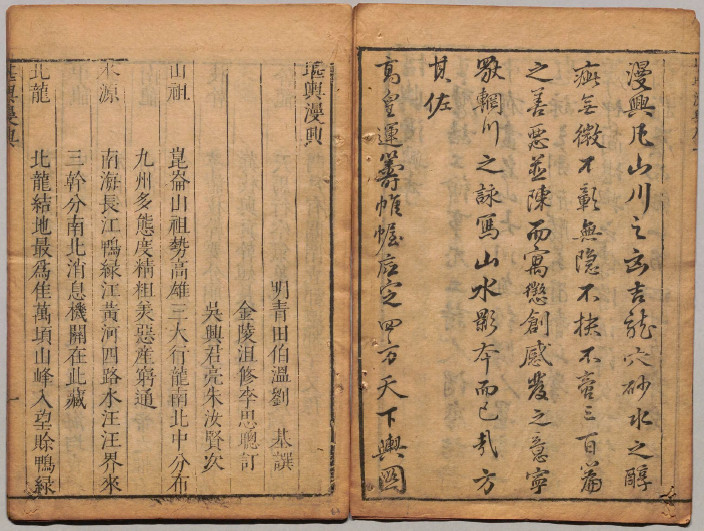 漫興凡山川之吉龍穴砂水之醇
疵微不彰無隱不抉不啻三百篇
之善惡並陳而寓懲創感發之意寧
輞川之詠寫山水影本而已哉方
其佐
高皇運籌帷幄底定方天下輿圖
堪輿漫興
明青田伯溫劉 基譔
金陵沮修李思聰訂
吳興君亮朱汝賢次
山祖 崑崙山祖勢高雄三大行龍南北中分布
九州多態度精粗美惡產窮通
水源 南海長江鴨綠江黃河四路水汪汪界來
三幹分南北消息機關在此藏
北龍 北龍結地最爲佳萬頃山峰入望賒鴨綠
堪輿漫興 一